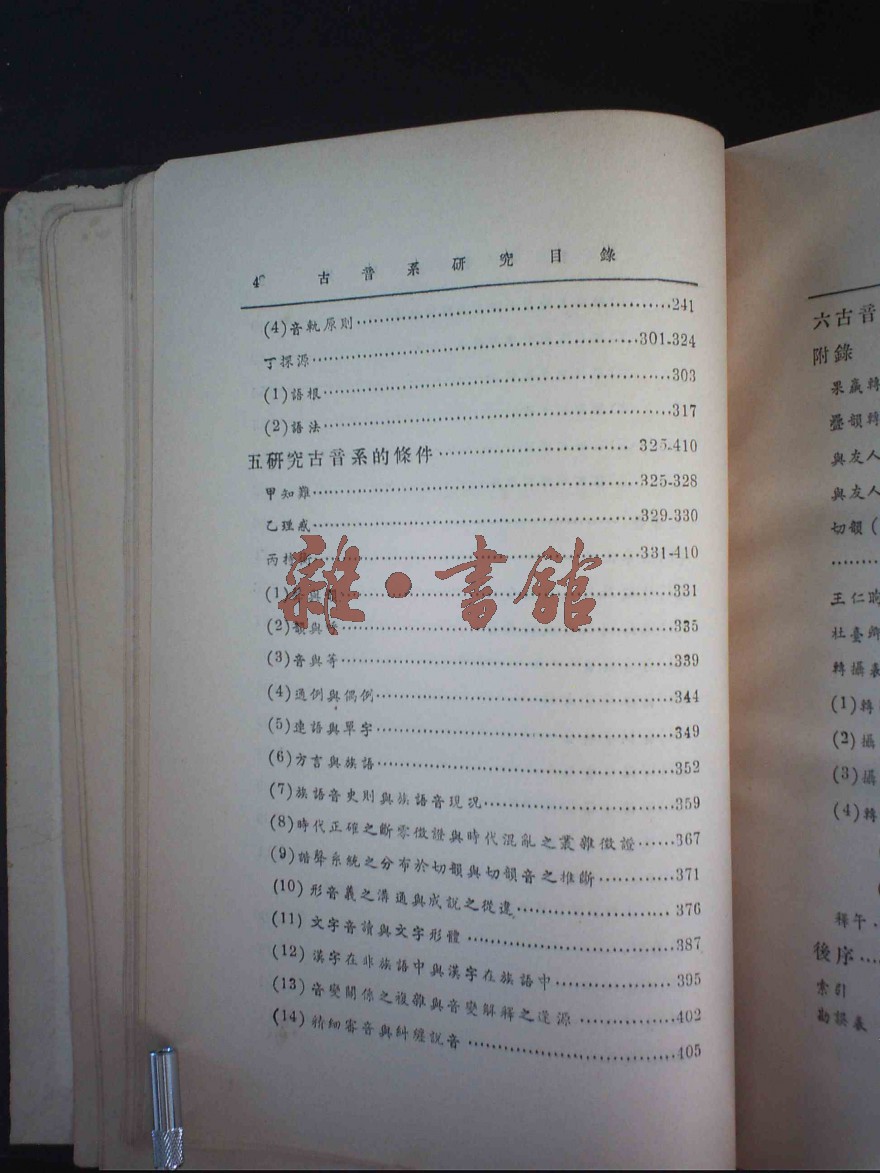 4 古音系研究目錄
(4)音軌原則……241
丁探源……301-324
(1)語根……303
(2)語法……317
五研究古音系的條件……325-410
甲知難……325-328
乙理惑……329-330
丙……331-410
(1)……331
(2)韻與……335
(3)音與等……339
(4)通例與偶例……344
(5)連語與單字……349
(6)方言與族語……352
(7)族語音史則與族語音現況……359
(8)時代正確之斷零徵證與時代混亂之叢雜徵證……367
(9)諧聲系統之分布於切韻與切韻音之推斷……371
(10)形音義之溝通與成說之從違……376
(11)文字音讀與文字形體……387
(12)漢字在非族語中與漢字在族語中……395
(13)音變關係之複雜與音變解釋之逢源……402
(14)精細審音與糾纏說音……405
雜·書館
六古音
附錄
果蠃轉
疊韻轉
與友人
與友人
切韻(
……
王仁昫
杜臺卿
轉攝表
(1)轉
(2)攝
(3)攝
(4)轉
釋午
後序……
索引
勘誤表